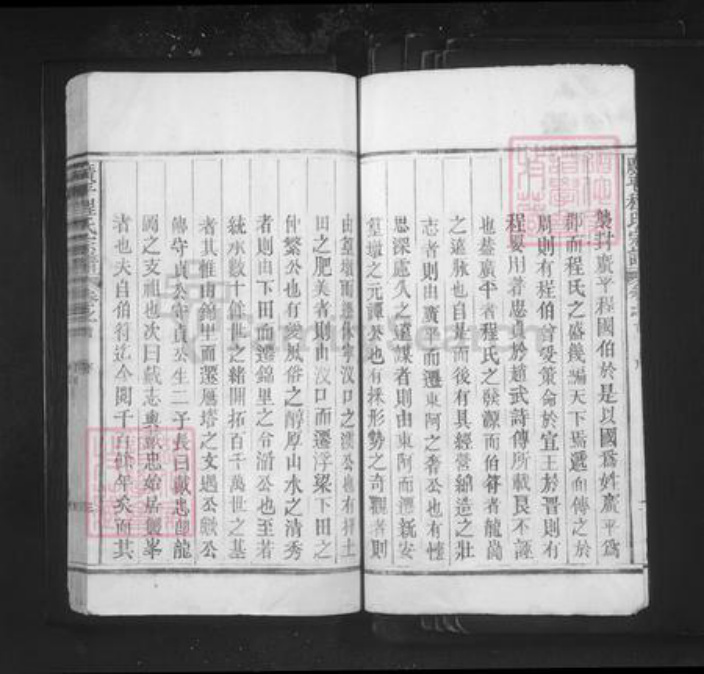 襲封廣平程國伯於是以國爲姓廣平爲
郡而程氏之盛幾徧天下焉遞而傳之於
周則有程伯曾受策命於宣王於晉則有
程嬰用著忠貞於趙武詩傳所載良不誣
也葢廣平者程氏之發源而伯符者龍崗
之遠脉也自此而後有具經營締造之壯
志者則由廣平而遷東阿之奢公也有懷
思深慮久之遠謀者則由東阿而遷新安
篁墩之元譚公也有採形勢之奇觀者則
由篁墩而遷休寧汊口之澐公也有擇土
田之肥美者則由汊口而遷浮梁下田之
仲繁公也有愛風俗之醇原山水之清秀
者則由下田而遷錦里之令湝公也至若
統承數十餘世之緒開拓百千萬世之基
者其惟由錦里而遷厯塔之文遇公歟公
傳守貞公守貞公生二子長曰戴忠
岡之支祖也次曰戴志與戴忠始居
者也夫自伯符迄今閱千百餘年矣而其
廣平程氏宗譜
廣平程氏宗譜